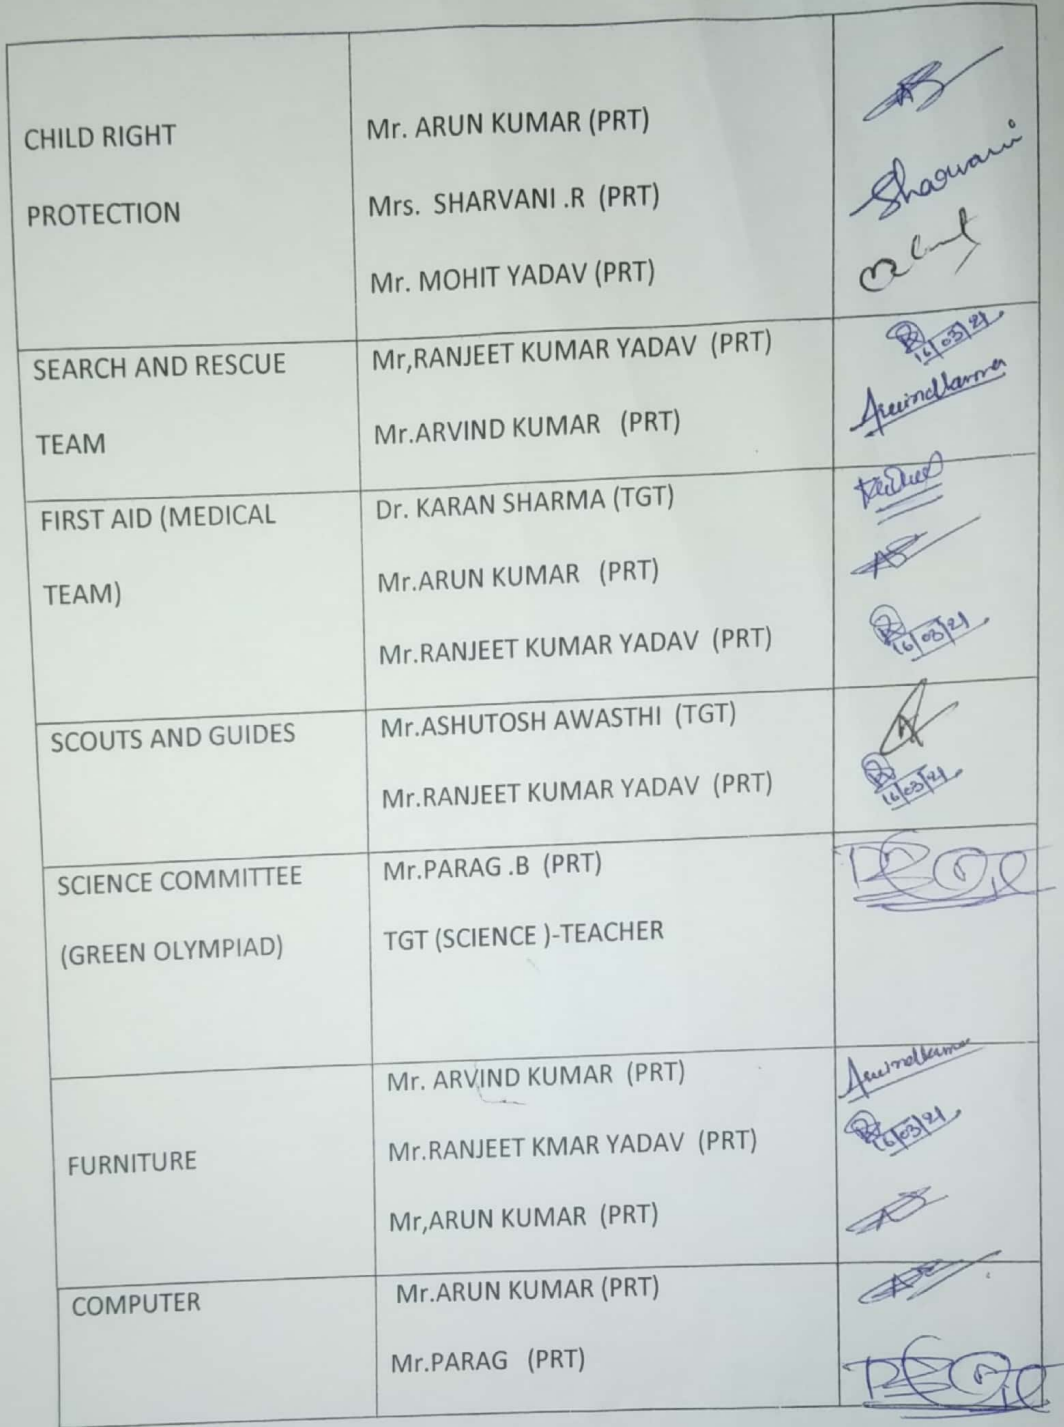 CHILD RIGHT
PROTECTION
Mr. ARUN KUMAR (PRT)
Mrs. SHARVANI .R (PRT)
Sharvani
Mr. MOHIT YADAV (PRT)
SEARCH AND RESCUE
TEAM
Mr,RANJEET KUMAR YADAV (PRT)
16/03/21
Mr.ARVIND KUMAR (PRT)
FIRST AID (MEDICAL
TEAM)
Dr. KARAN SHARMA (TGT)
Mr.ARUN KUMAR (PRT)
Mr.RANJEET KUMAR YADAV (PRT)
16/03/21
SCOUTS AND GUIDES
Mr.ASHUTOSH AWASTHI (TGT)
Mr.RANJEET KUMAR YADAV (PRT)
16/03/21
SCIENCE COMMITTEE
(GREEN OLYMPIAD)
Mr.PARAG .B (PRT)
TGT (SCIENCE )-TEACHER
FURNITURE
Mr. ARVIND KUMAR (PRT)
Mr.RANJEET KMAR YADAV (PRT)
16/03/21
Mr,ARUN KUMAR (PRT)
COMPUTER
Mr.ARUN KUMAR (PRT)
Mr.PARAG (PRT)